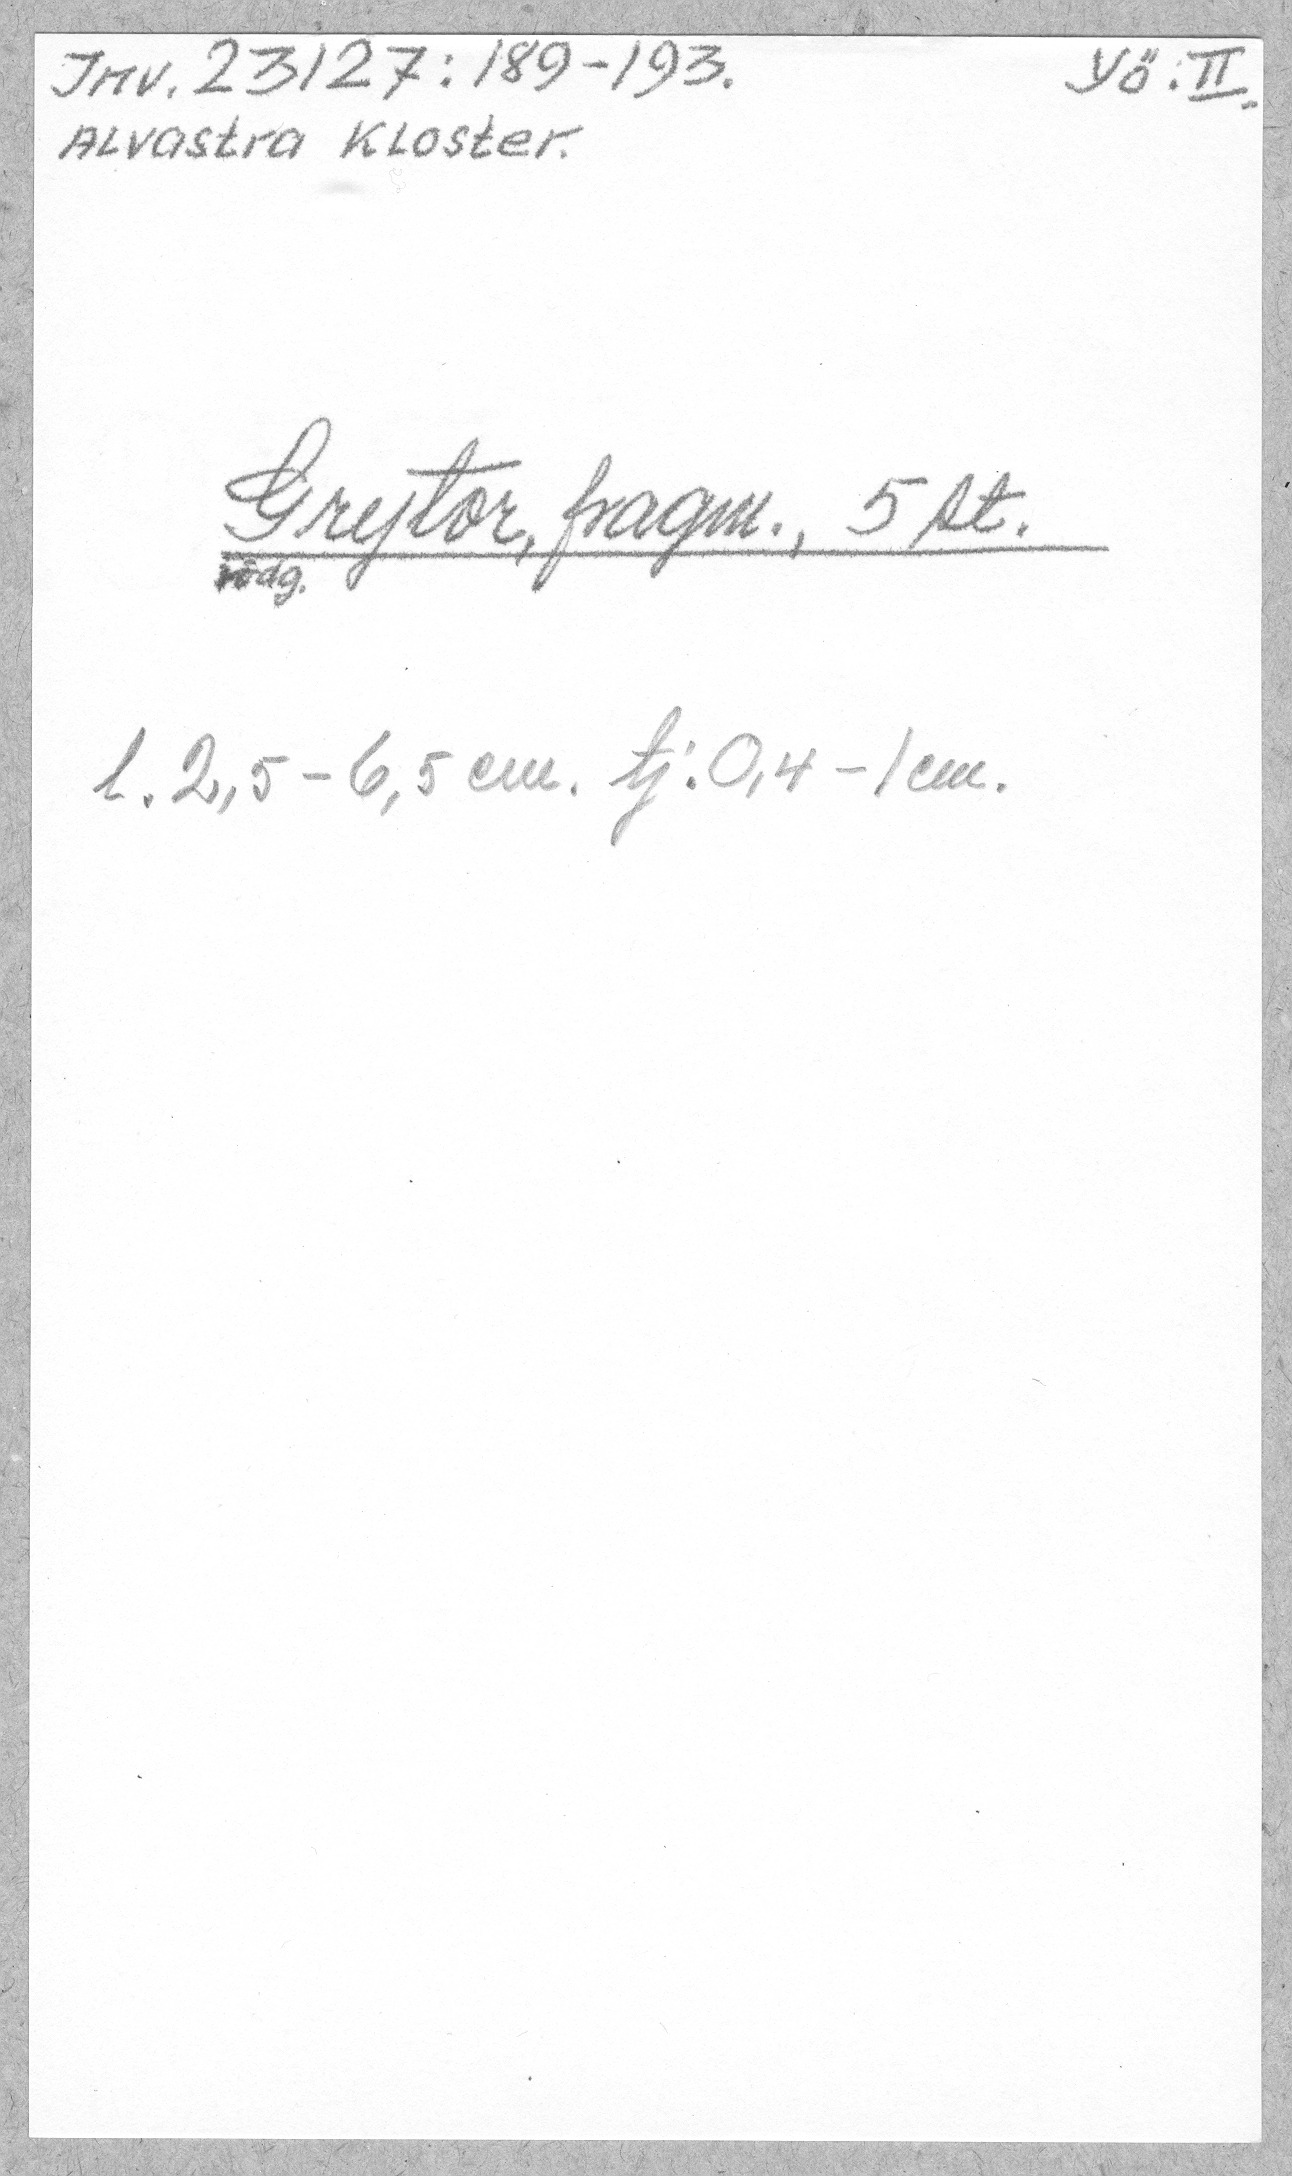 Inv. 23127:189-193. Yö:II.
Alvastra Kloster.
Grytor, fragm., 5 st.
rödg.
l. 2,5-6,5 cm. tj: 0,4-1 cm.